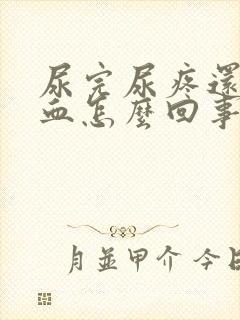 尿完尿疼還
血怎麼回事
月並甲介 今日